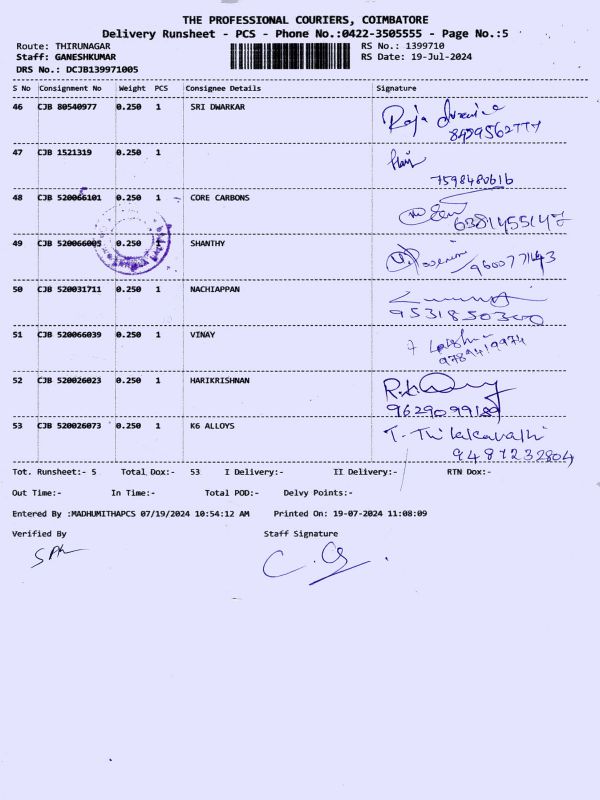 THE PROFESSIONAL COURIERS, COIMBATORE
Delivery Runsheet - PCS - Phone No.:0422-3505555 - Page No.:5
Route: THIRUNAGAR RS No.: 1399710
Staff: GANESHKUMAR RS Date: 19-Jul-2024
DRS No.: DCJB139971005
S No Consignment No Weight PCS Consignee Details Signature
46 CJB 80540977 0.250 1 SRI DWARKAR Raja
8499562777
47 CJB 1521319 0.250 1
7598480616
48 CJB 520066101 0.250 1 CORE CARBONS
6381455147
49 CJB 520066005 0.250 1 SHANTHY
9600771143
50 CJB 520031711 0.250 1 NACHIAPPAN
9531850300
51 CJB 520066039 0.250 1 VINAY
9789419974
52 CJB 520026023 0.250 1 HARIKRISHNAN
9629099189
53 CJB 520026073 0.250 1 K6 ALLOYS T. Thilakavathi
9487232804
Tot. Runsheet:- 5 Total Dox:- 53 I Delivery:- II Delivery:- RTN Dox:-
Out Time:- In Time:- Total POD:- Delvy Points:-
Entered By :MADHUMITHAPCS 07/19/2024 10:54:12 AM Printed On: 19-07-2024 11:08:09
Verified By Staff Signature